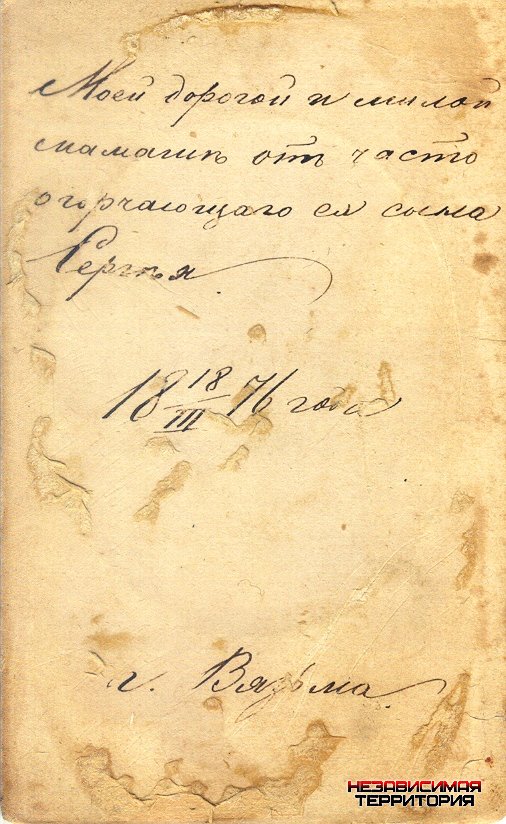 Моей дорогой и милой
мамашѣ отъ часто
огорчающаго ея сына
Сергѣя
18 18/III 76 года
г. Вязьма
НЕЗАВИСИМАЯ
ТЕРРИТОРИЯ